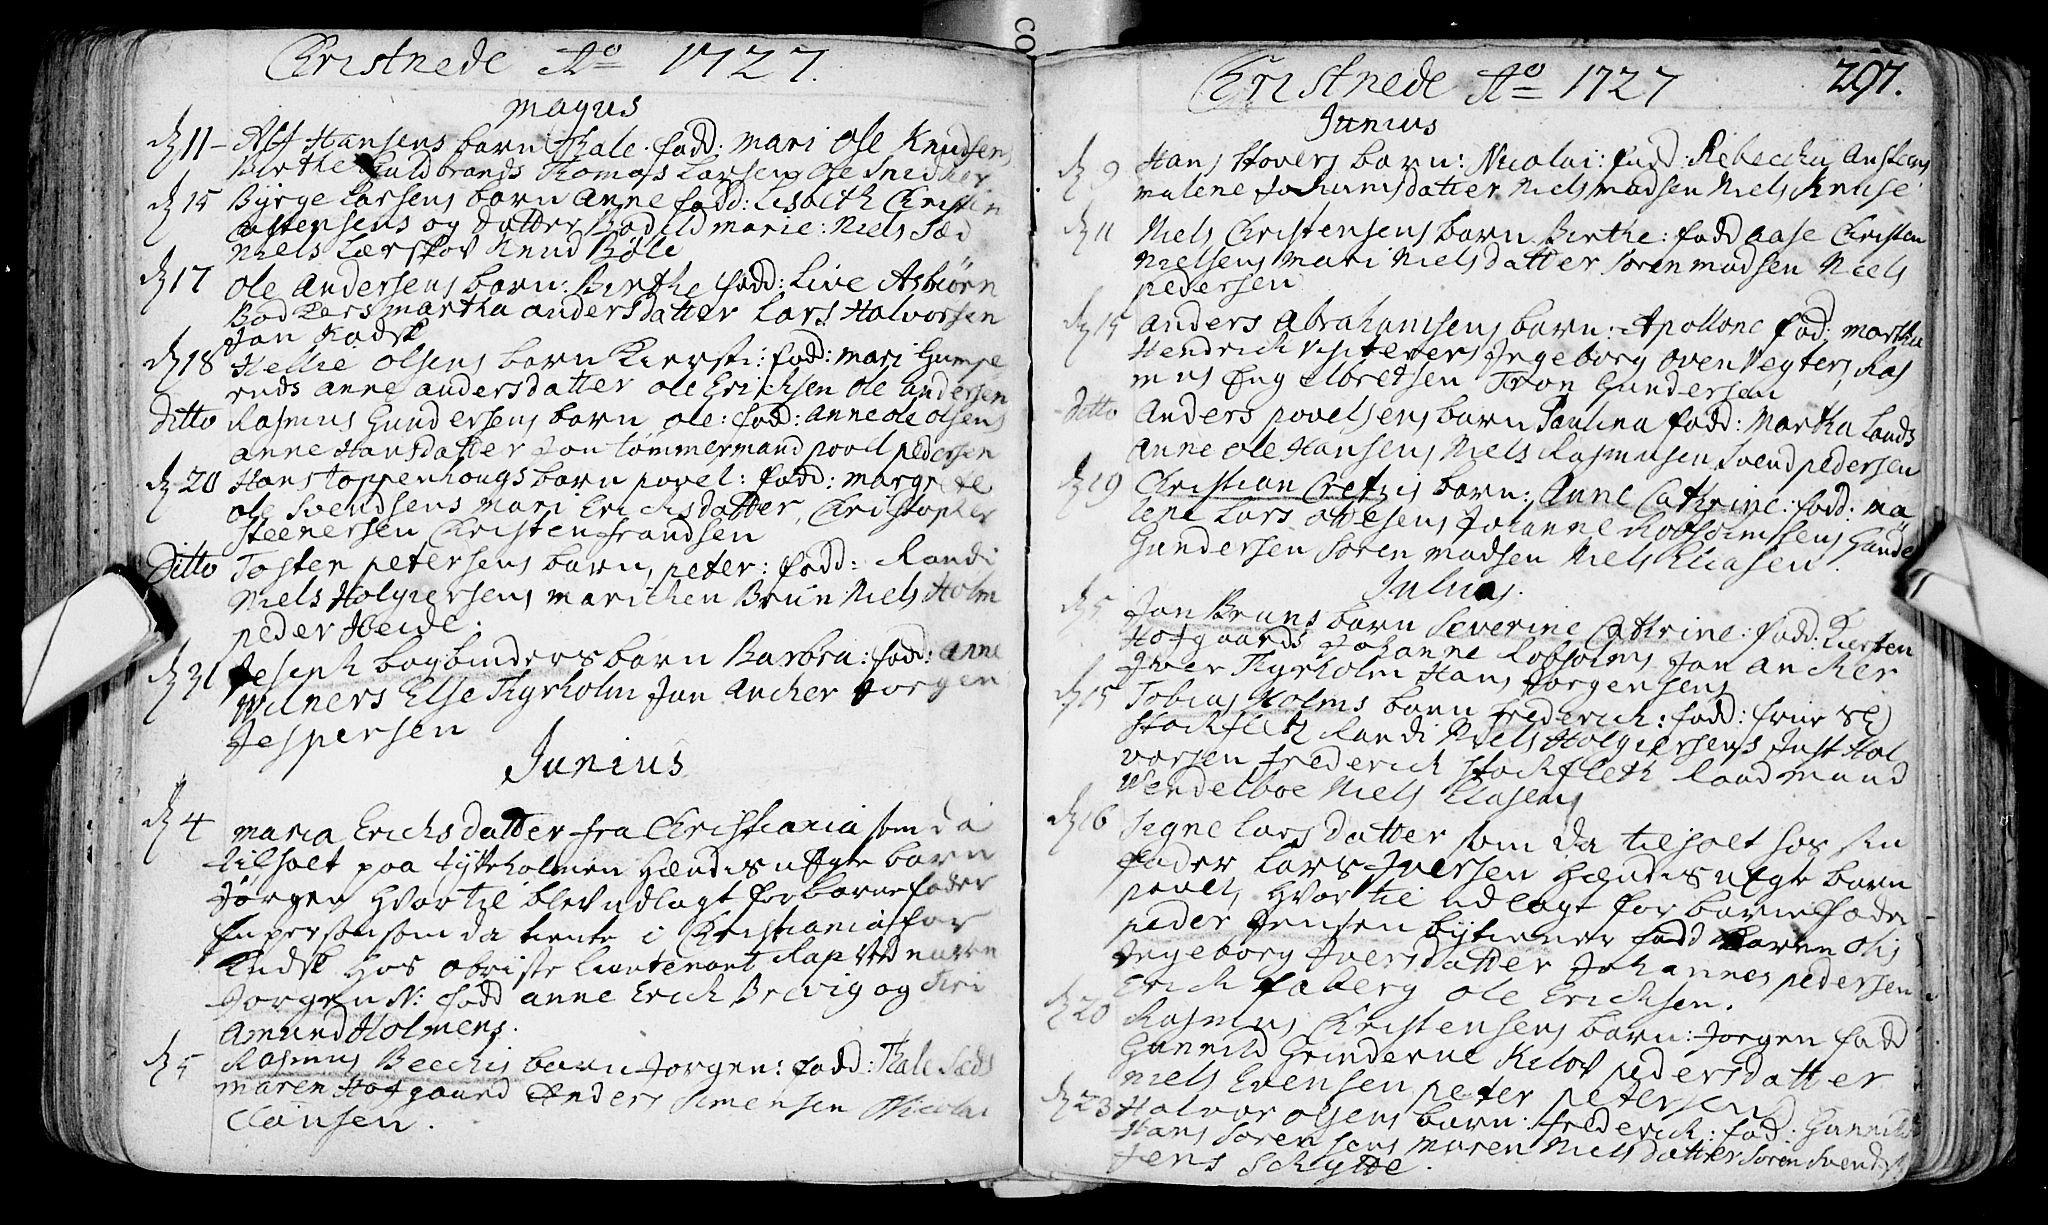 Christnede Ao 1727.
Majus
d 11 - Alf Hansens barn Thale. fadd: mari Ole Knudsens
Birthe Guldbrands Thomas Larsen Ole Snedker
d 15 Byrge Larsens barn Anne fadd: Lisbeth Christen
Castensens og datter Bodild marie: Niels Sæd
Niels Lærskov Knud Böle
d 17 Ole Andersens barn: Birthe fadd: Live Asbiörn
Bödkers martha andersdatter Lars Halvorsen
Jan Kadsk
d 18 Hellie Olsens barn Kiersti: fadd: mari Gumpe
ruds anne andersdatter ole Ericksen Ole andersen
Ditto Rasmus Gundersens barn ole: fadd: Anne ole olsens
anne Hansdatter Jon tömmermand povel pedersen
d 20 Hans Toppenhougs barn povel: fadd: margrete
ole Svendsens mari Ericksdatter, Christopher
Steenersen Christen frandsen
Ditto Tosten petersens barn, peter: fadd: Randi
Niels Holgiersens marichen Brun Niels Holm
peder Heide.
d 31 Joseph bogbinders barn Barbra: fadd: anne
Wilners Else Thyrholm Jan Ancher Jorgen
Jespersen
Junius
d 4 maria Ericksdatter fra Christiania som da
tilholt paa Tytteholmen Hændis uægte barn
Jörgen Hvortil blev udlagt for barnefader
En person som da tiente i Christiania for
Kudsk hos obriste Lieutenant Rap ved navn
Jorgen N: fadd anne Erick Brevig og Siri
Amund Holmens.
d 5 Rasmus Becchis barn Jorgen: fadd: Thale Sæds
maren Hofgaard Anders Simensen Nicolai
Clausen.
Christnede Ao 1727 297.
Junius
d 9 Hans Hovers barn: Nicolai: fadd: Rebeccha
malene Johansdatter Niels madsen Niels Knuse
d 11 Niels Christensens barn Birthe: fadd aase Christen
Nielsens mari Nielsdatter Soren madsen Niels
pedersen
d 15 anders Abrahamsens barn: Apollone fad: martha
Hendrich Visiteurs Ingeborg oven Vegters, Ras
mus Engelbretsen Tron Gundersen
Ditto Anders povelsens barn Paulina fadd: Martha Lands
Anne ole Hansens Niels Rasmusen Svend pedersen
d 19 Christian Cretzis barn: Anne Cathrine: fadd: ma
lene Lars Johanne Gunde
Gundersen Soren madsen Niels Eliasen.
Julius.
d 5 Jan Bruns barn Severine Cathrine: fadd: Kirsten
Hofgaards Johanne Robsolms Jan ancher
Iver Thyrholm Hans Jorgensens
d 15 Tobias Holms barn frederich: fadd: frue
Stockfleth Randi Niels Holgiersens Just Hal
vorsen frederich Stockfleth Raadmand
Wendelboe Niels Eliasens
d 16 Signe Larsdatter som da tilholt hos sin
fader Lars Iversen Hændis uægte barn
povel, Hvortil udlagt for barnefader
peder Jensen bytiener fadd Karen Olis
Ingeborg Iversdatter Johannes pedersen
Erick faberg ole Ericksen.
d 20 Rasmus Christensens barn: Jorgen fadd
Gunnild Grinderne pedersdatter
Niels Evensen peter petersen
d 23 Halvor olsens barn: frederich: fad: Gunnild
Hans Sorensens maren Nielsdatter Soren Svends
Jens Schytte.